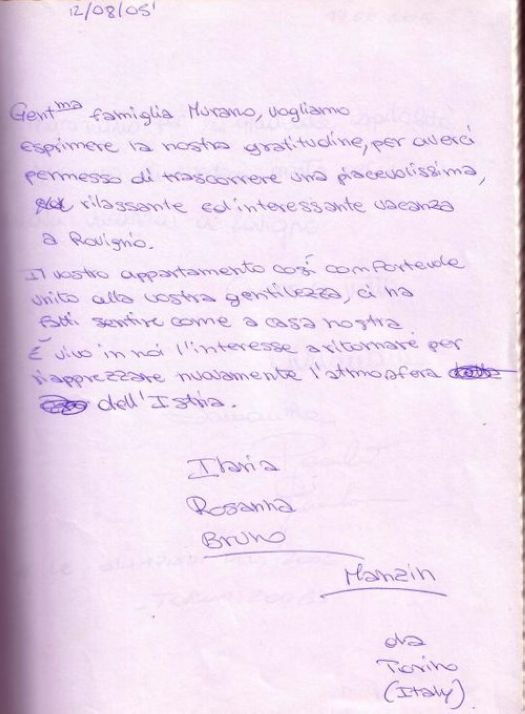 12/08/05'
Gent.ma famiglia Murano, vogliamo
esprimere la nostra gratitudine, per averci
permesso di trascorrere una piacevolissima,
rilassante ed interessante vacanza
a Rovigno.
Il vostro appartamento così confortevole
unito alla vostra gentilezza, ci ha
fatti sentire come a casa nostra.
È vivo in noi l'interesse a ritornare per
riapprezzare nuovamente l'atmosfera
dell'Istria.
Ilaria
Rosanna
Bruno
Manzin
da
Torino
(Italy)